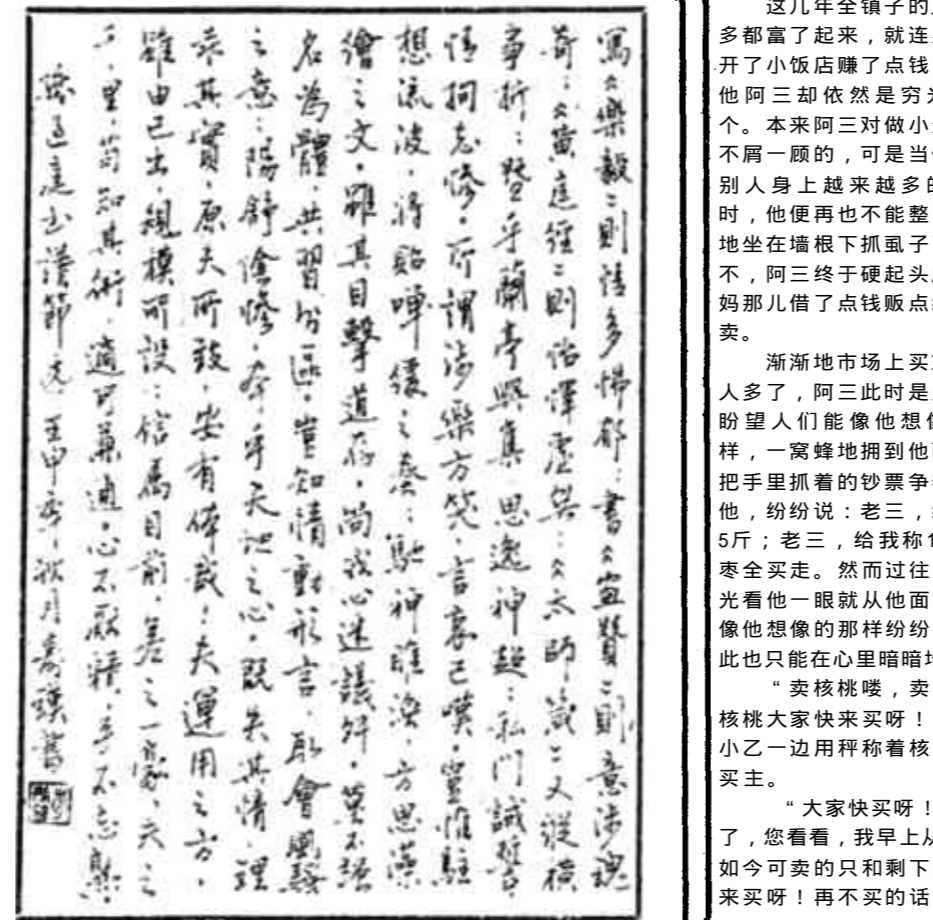 寫《樂毅》則情多怫郁；書《畫贊》則意涉瑰
奇；《黃庭經》則怡懌虛無；《太師箴》又縱橫
爭折；暨乎蘭亭興集，思逸神超；私門誡誓，
情拘志慘。所謂涉樂方笑，言哀已嘆。豈惟駐
想流波，將貽嘽緩之奏；馳神睢渙，方思藻
繪之文。雖其目擊道存，尚或心迷議舛。莫不强
名為體，共習分區。豈知情動形言，取會風騷
之意；陽舒陰慘，本乎天地之心。既失其情，理
乖其實，原夫所致，安有体哉！夫運用之方，
雖由己出，規模所設；信屬目前，差之一豪，失之
千里，苟知其術，適可兼通。心不厭精，手不忘熟。
孫過庭書譜節选
这几年全镇子的
多都富了起来，就连
开了小饭店赚了点钱
他阿三却依然是穷光
个。本来阿三对做小
不屑一顾的，可是当
别人身上越来越多的
时，他便再也不能整
地坐在墙根下抓虱子
不，阿三终于硬起头
妈那儿借了点钱贩点
卖。
渐渐地市场上买
人多了，阿三此时是
盼望人们能像他想像
样，一窝蜂地拥到他
把手里抓着的钞票争
他，纷纷说：老三，
5斤；老三，给我称1
枣全买走。然而过往
光看他一眼就从他面
像他想像的那样纷纷
此也只能在心里暗暗地
“卖核桃喽，卖
核桃大家快来买呀！
小乙一边用秤称着核
买主。
“大家快买呀！
了，您看看，我早上从
如今可卖的只和剩下
来买呀！再不买的话